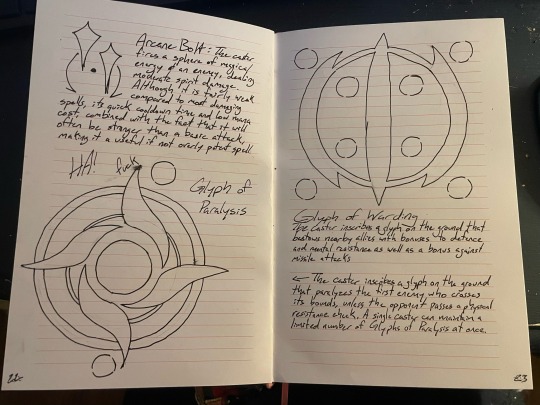 Arcane Bolt: The caster
fires a sphere of magical
energy at an enemy, dealing
moderate spirit damage.
Although it is fairly weak
compared to most damaging
spells, its quick cooldown time and low mana
cost, combined with the fact that it will
often be stronger than a basic attack,
making it a useful if not overly potent spell.
HA!
Glyph of
Paralysis
22
Glyph of Warding
The caster inscribes a glyph on the ground that
bestows nearby allies with bonuses to defence
and mental resistance as well as a bonus against
missile attacks
← The caster inscribes a glyph on the ground
that paralyzes the first enemy who crosses
its bounds, unless the opponent passes a physical
resistance check. A single caster can maintain a
limited number of Glyphs of Paralysis at once.
23